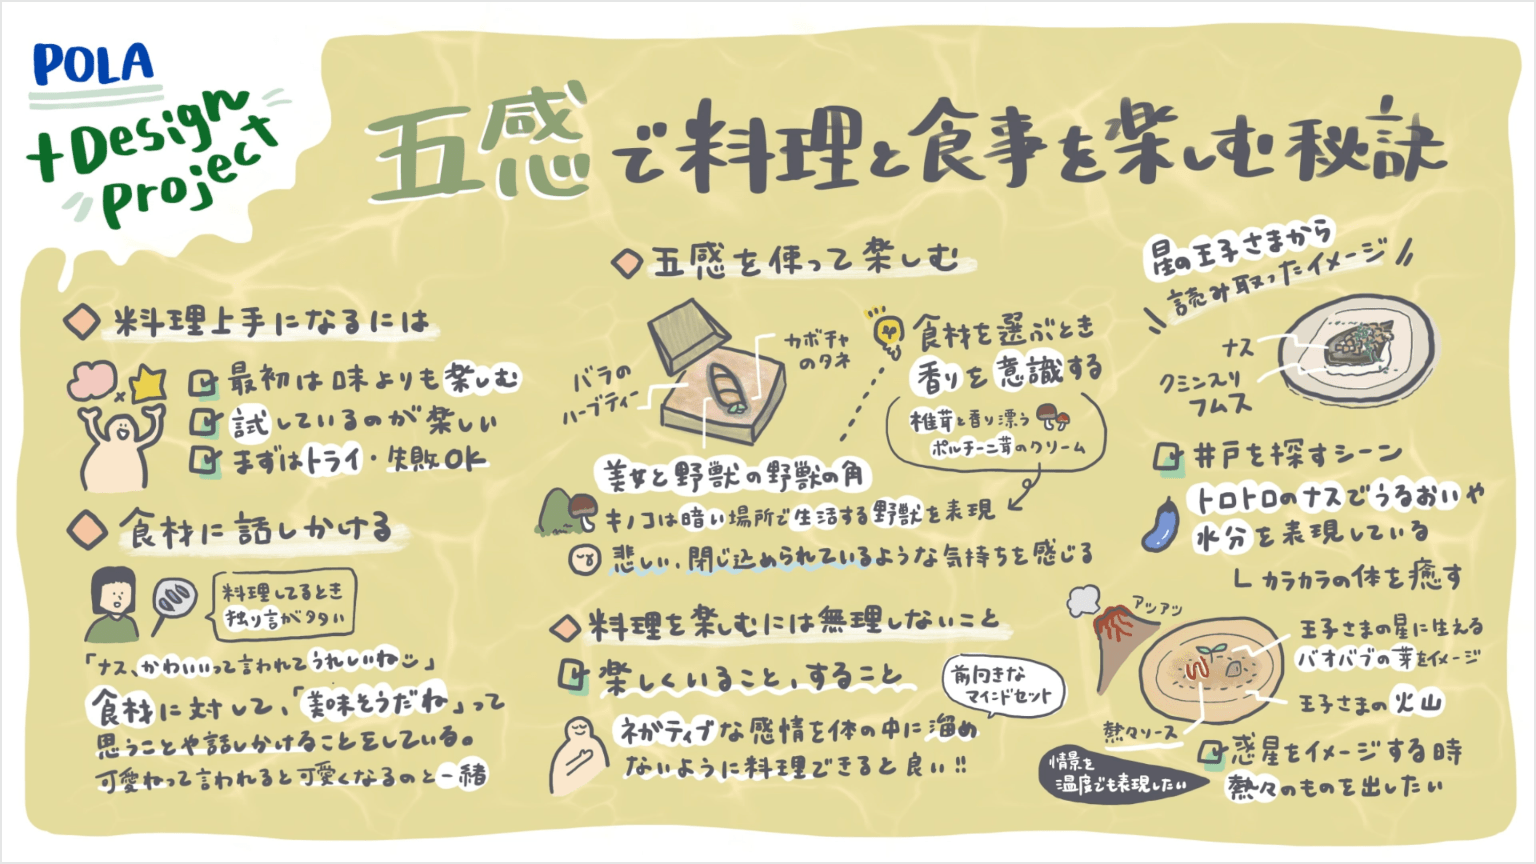 POLA
+Design
Project
五感で料理と食事を楽しむ秘訣
料理上手になるには
最初は味よりも楽しむ
試しているのが楽しい
まずはトライ・失敗OK
食材に話しかける
料理してるとき
独り言がタタい
「ナス、かわいいって言われてうれしいね」
食材に対して、「美味そうだね」って
思うことや話しかけることをしている。
可愛ねって言われると可愛くなるのと一緒
五感を使って楽しむ
バラの
ハーブティー
カボチャ
のタネ
食材を選ぶとき
香りを意識する
椎茸と香り漂う
ポルチーニ茸のクリーム
美女と野獣の野獣の角
キノコは暗い場所で生活する野獣を表現
悲しい、閉じ込められているような気持ちを感じる
料理を楽しむには無理しないこと
楽しくいること、すること
前向きな
マインドセット
ネガティブな感情を体の中に溜め
ないように料理できると良い!!
星の王子さまから
読み取ったイメージ
ナス
クミン入り
フムス
井戸を探すシーン
トロトロのナスでうるおいや
水分を表現している
L カラカラの体を癒す
アツアツ
王子さまの星に生える
バオバブの芽をイメージ
王子さまの火山
熱々ソース
惑星をイメージする時
熱々のものを出したい
情景を
温度でも表現したい